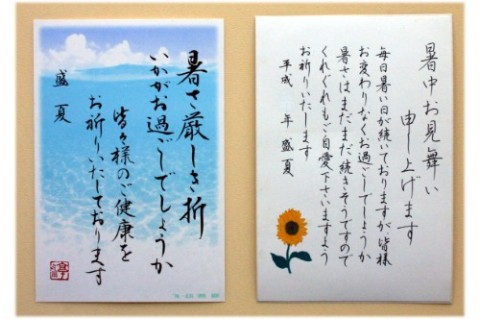 暑さ厳しき折
いかがお過ごしでしょうか
皆々様のご健康を
お祈りいたしております
盛夏
暑中お見舞い
申し上げます
毎日暑い日が続いておりますが皆様
お変わりなくお過ごしでしょうか
暑さはまだまだ続きそうですので
くれぐれもご自愛下さいますよう
お祈りいたします
平成 年 盛夏